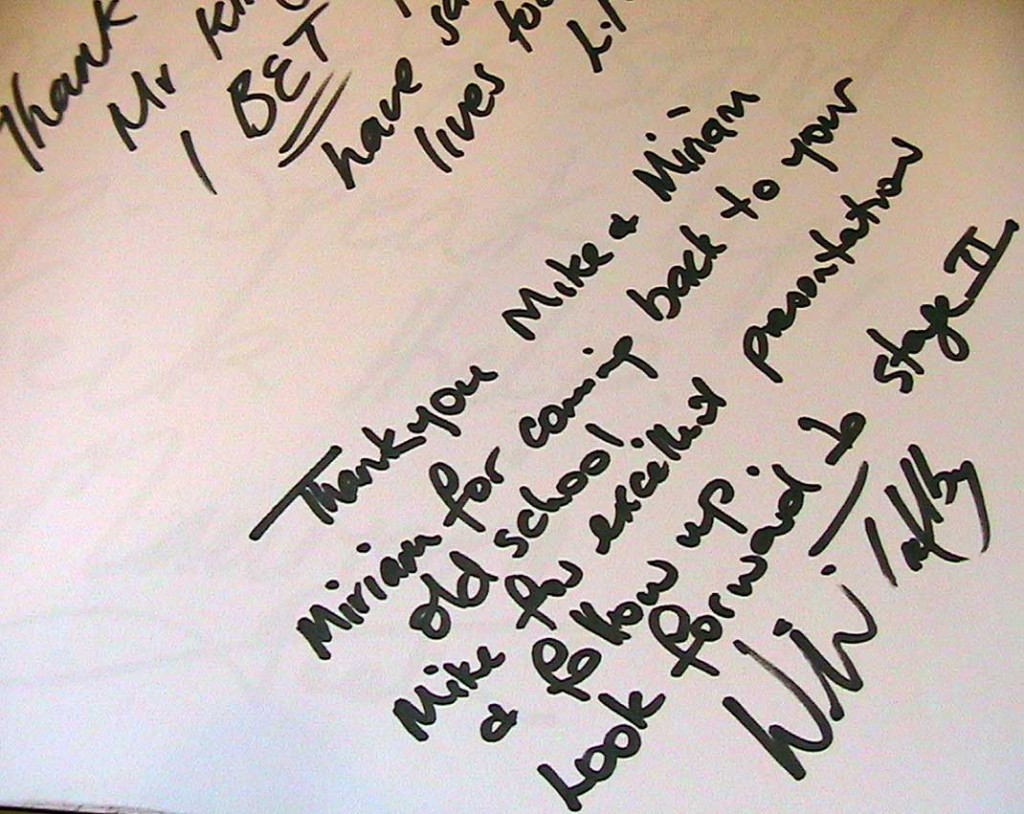 Thank
Mr
I BET
have
lives
Thankyou Mike & Miriam
Miriam for coming back to your
old school
Mike for excellent presentation
& follow up
Look forward to stage II